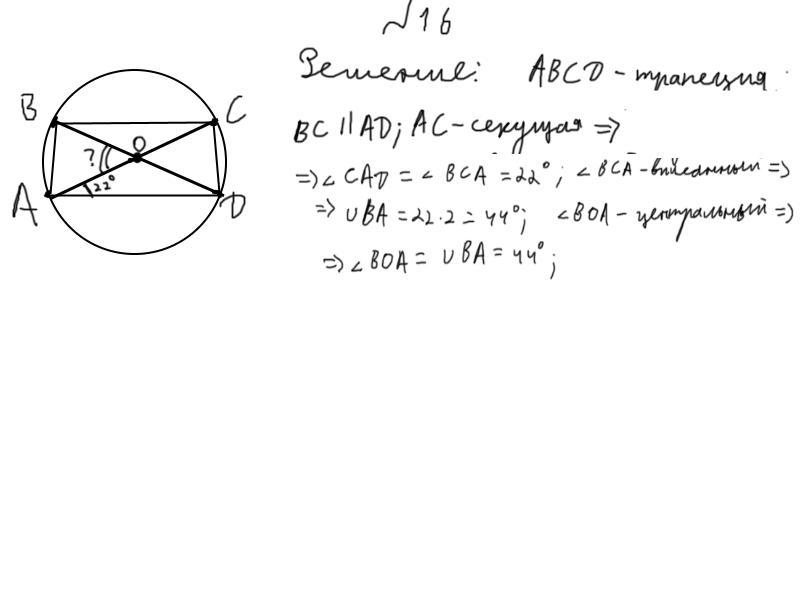 √16
Решение: ABCD - трапеция
BC || AD; AC - секущая =>
B
C
O
?
22°
A
D
=> ∠ CAD = ∠ BCA = 22°; ∠ BCA - вписанный =>
=> ∪BA = 22·2 = 44°; ∠BOA - центральный =>
=> ∠BOA = ∪BA = 44°;